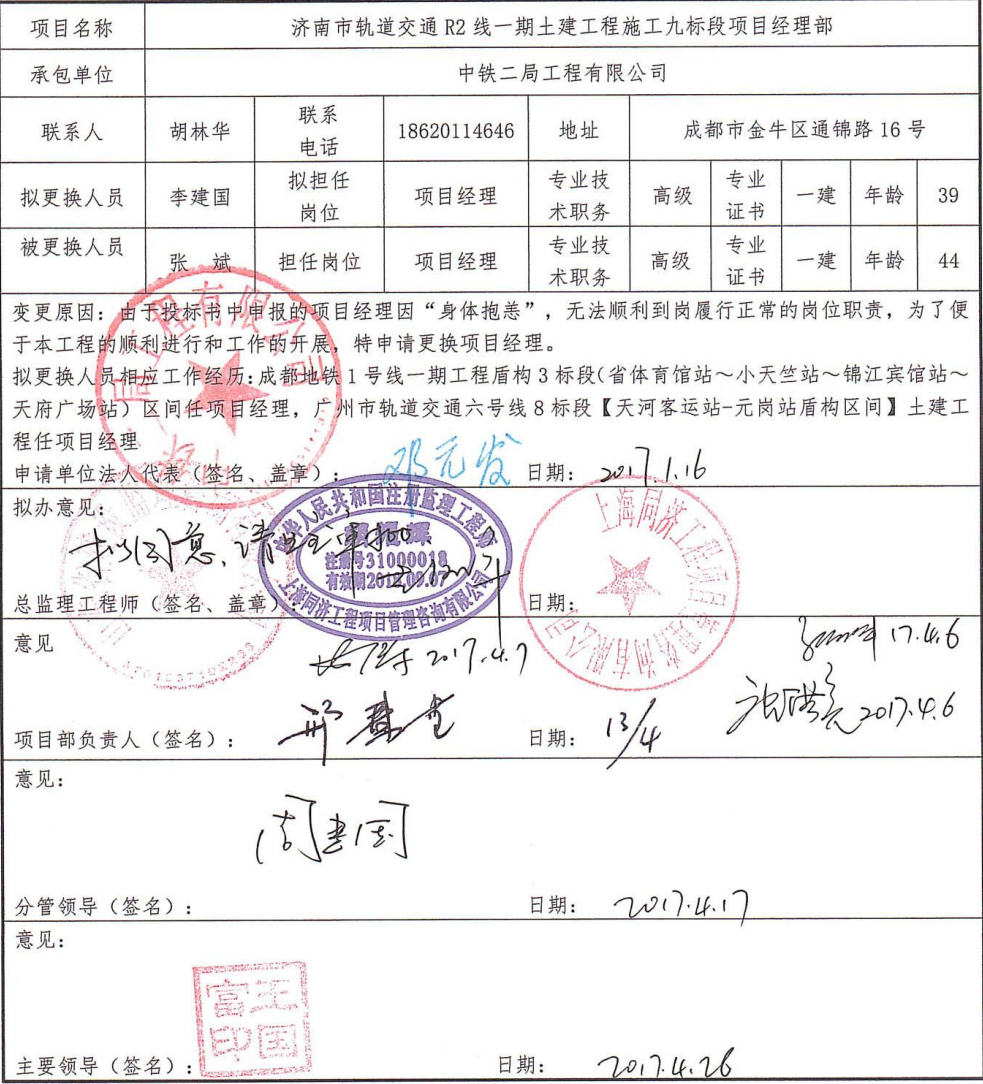 项目名称 济南市轨道交通 R2 线一期土建工程施工九标段项目经理部
承包单位 中铁二局工程有限公司
联系人 胡林华 联系电话 18620114646 地址 成都市金牛区通锦路 16 号
拟更换人员 李建国 拟担任岗位 项目经理 专业技术职务 高级 专业证书 一建 年龄 39
被更换人员 张 斌 担任岗位 项目经理 专业技术职务 高级 专业证书 一建 年龄 44
变更原因：由于投标书中申报的项目经理因“身体抱恙”，无法顺利到岗履行正常的岗位职责，为了便
于本工程的顺利进行和工作的开展，特申请更换项目经理。
拟更换人员相应工作经历：成都地铁 1 号线一期工程盾构 3 标段（省体育馆站～小天竺站～锦江宾馆站～
天府广场站）区间任项目经理，广州市轨道交通六号线 8 标段【天河客运站-元岗站盾构区间】土建工
程任项目经理
申请单位法人代表（签名、盖章）： 邓元发 日期： 2017.1.16
拟办意见：
拟同意，请业主审批
中华人民共和国注册监理工程师
注册号31000018
上海同济工程项目管理咨询有限公司
总监理工程师（签名、盖章） 日期：
上海同济工程项目管理咨询有限公司
意见
2017.4.7 17.4.6
2017.4.6
项目部负责人（签名）： 日期： 13/4
意见：
周建国
分管领导（签名）： 日期： 2017.4.17
意见：
王国富印
主要领导（签名）： 日期： 2017.4.26